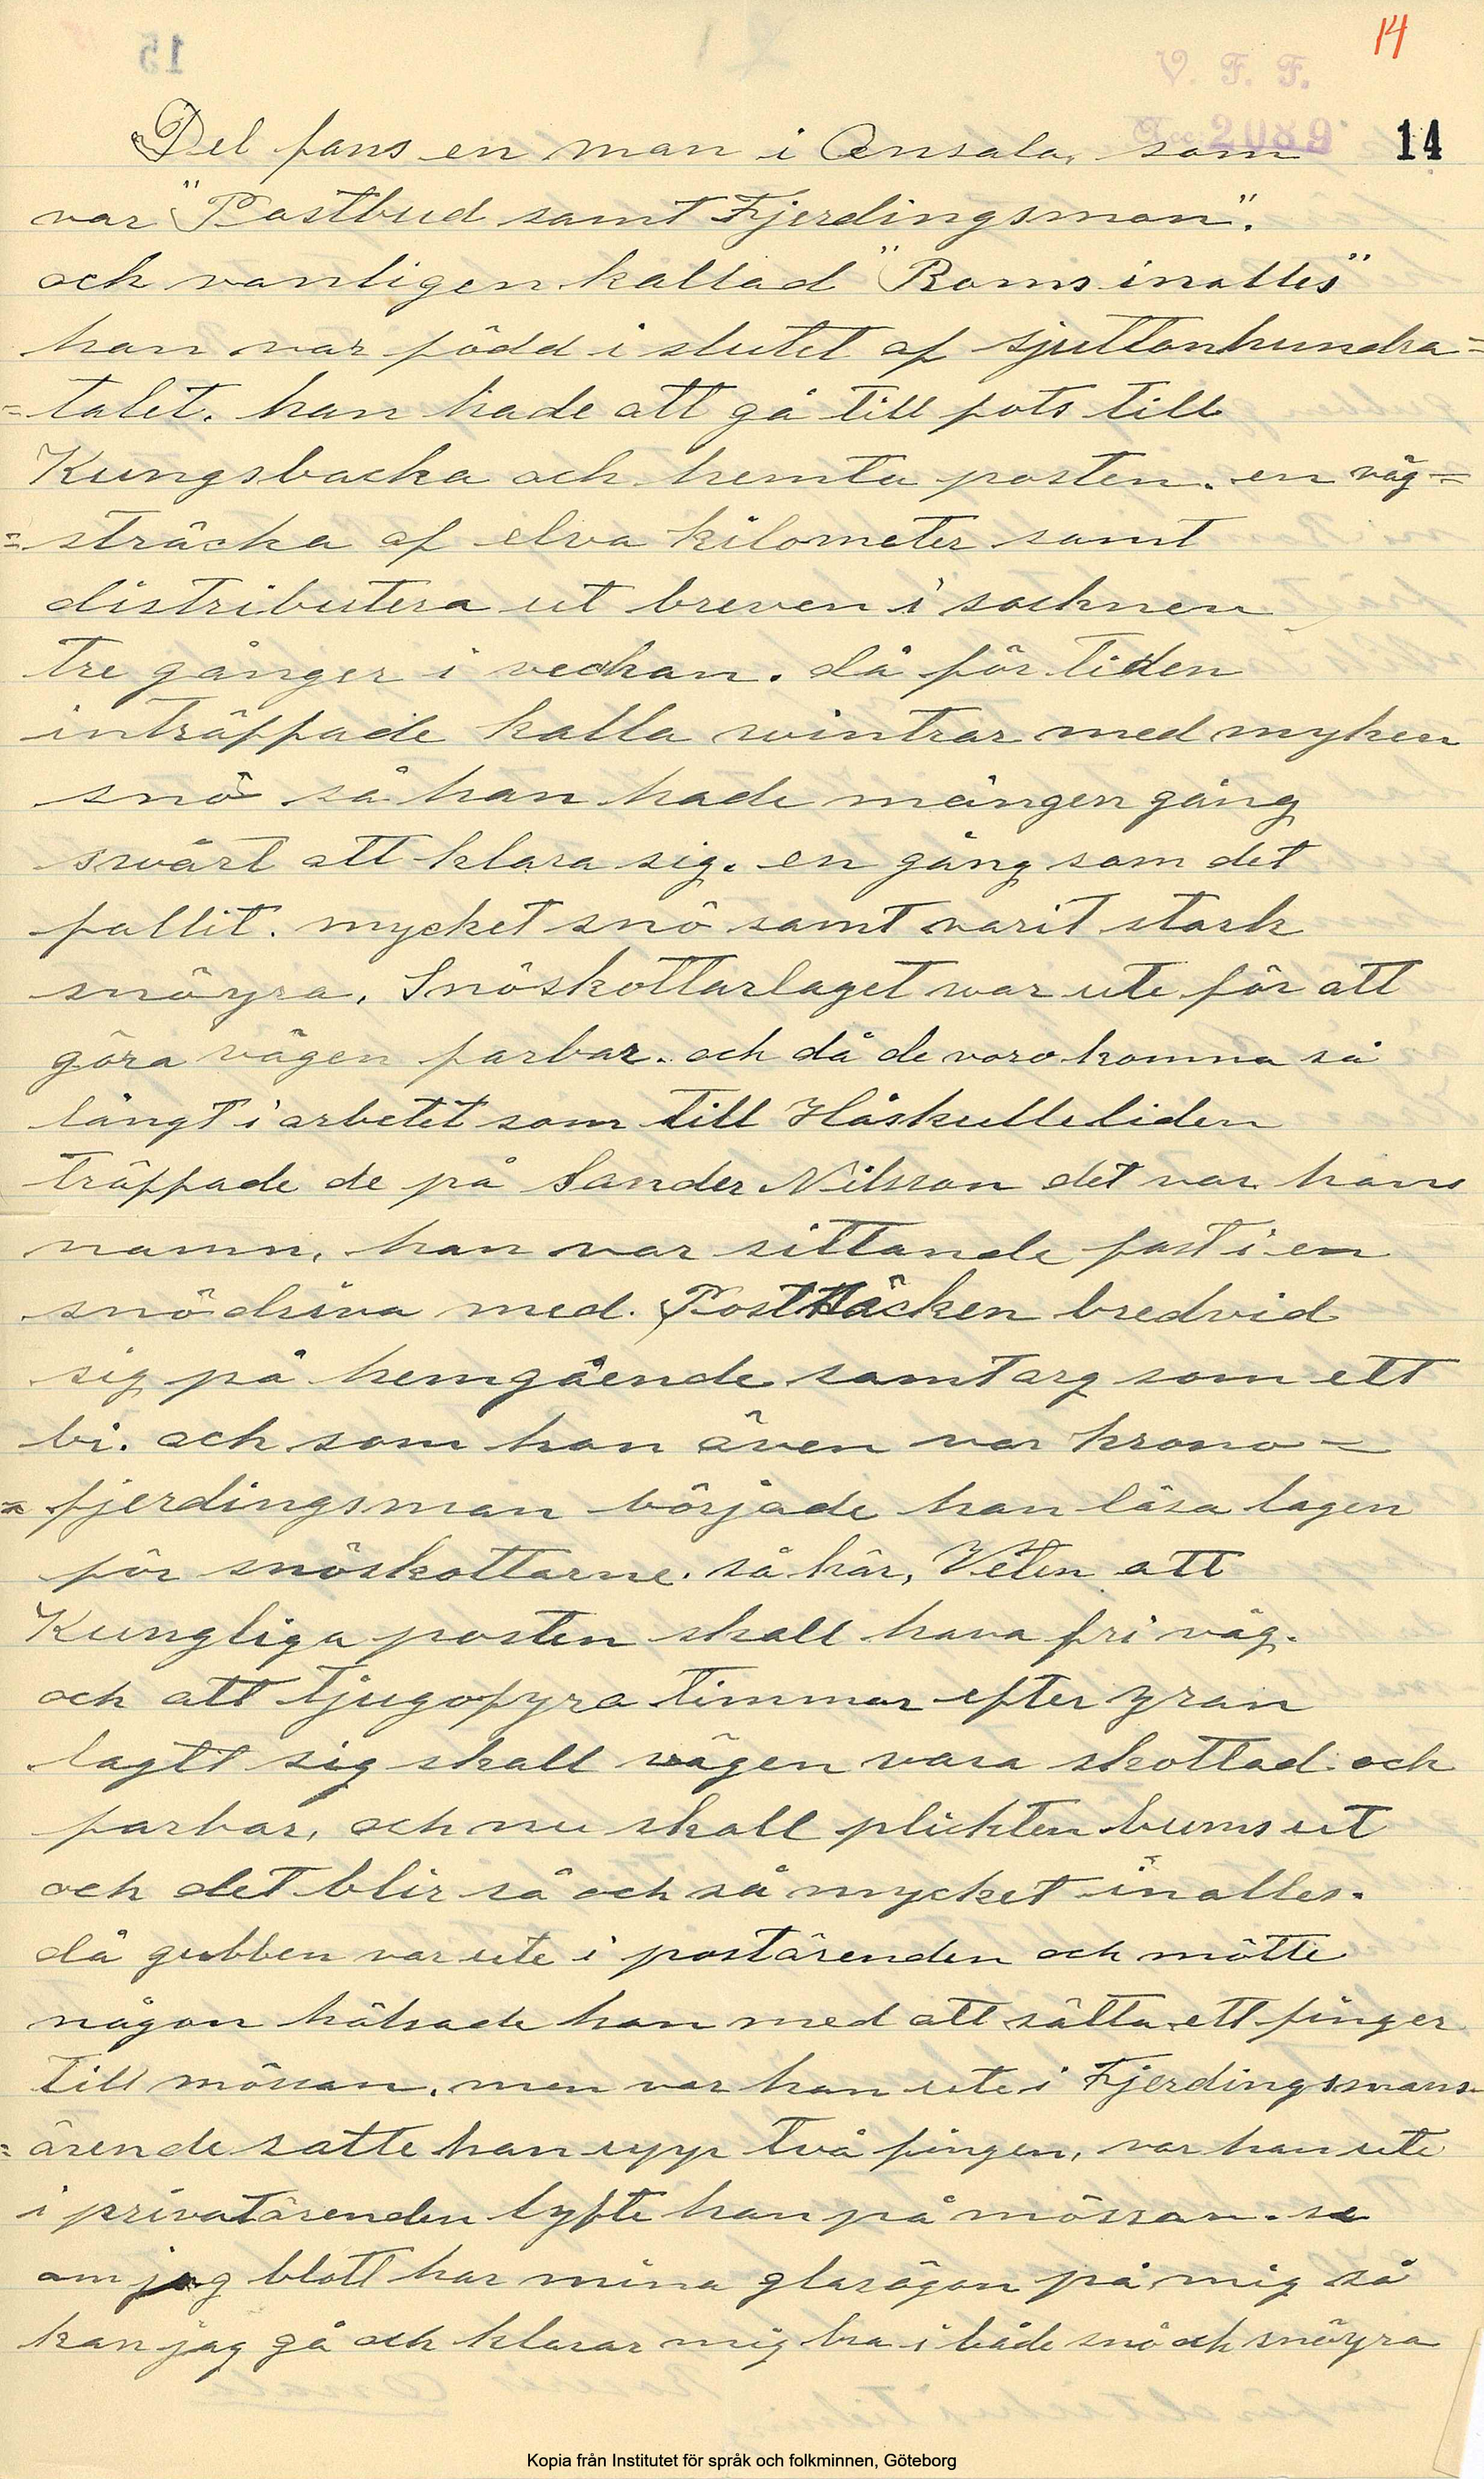 14
V. F. F.
Acc. 2089
14
Det fans en man i Onsala, som
var "Postbud samt Fjerdingsman".
och vanligen kallad "Bomsinalles"
han var född i slutet af sjuttonhundra=
=talet. han hade att gå till fots till
Kungsbacka och hemta posten. en väg=
=sträcka af elva kilometer samt
distributera ut breven i socknen
tre gånger i veckan. då för tiden
inträffade kalla wintrar med myken
snö så han hade mången gång
svårt att klara sig. en gång som det
fallit. mycket snö samt varit stark
snöyra. Snöskottarlaget war ute för att
göra vägen farbar. och då de voro komna så
långt i arbetet som till Håskulleliden
träffade de på Sander Nilsson det var hans
namn, han var sittande fast i en
snödriva med. Postsäcken bredvid
sig på hemgående samt arg som ett
bi. och som han även var krono=
=fjerdingsman började han läsa lagen
för snöskottarne. så här, Veten att
Kungliga posten skall hava fri väg.
och att tjugofyra timmar efter yran
lagtt sig skall vägen vara skottad och
farbar, och nu skall plickten bums ut
och det blir så och så mycket inalles.
då gubben var ute i postärenden och mötte
någon hälsade han med att sätta ett finger
till mössan. men var han ute i Fjerdingsmans=
=ärende satte han upp två fingen, var han ute
i privatärenden lyfte han på mössan. se
om jag blott har mina glasögon på mig så
kan jag gå och klarar mig bra i både snö och snöyra
Kopia från Institutet för språk och folkminnen, Göteborg